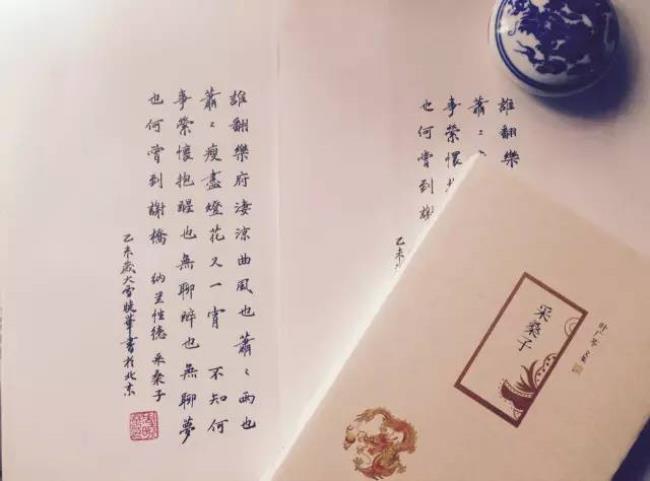 誰翻樂府淒涼曲風也蕭〻雨也
蕭〻瘦盡燈花又一宵 不知何
事縈懷抱醒也無聊醉也無聊夢
也何嘗到謝橋 納兰性德 采桑子
乙未歲大雪曉華書於北京
誰翻樂
蕭〻
事縈懷
也何嘗到謝
乙未
采桑子
叶广芩 著